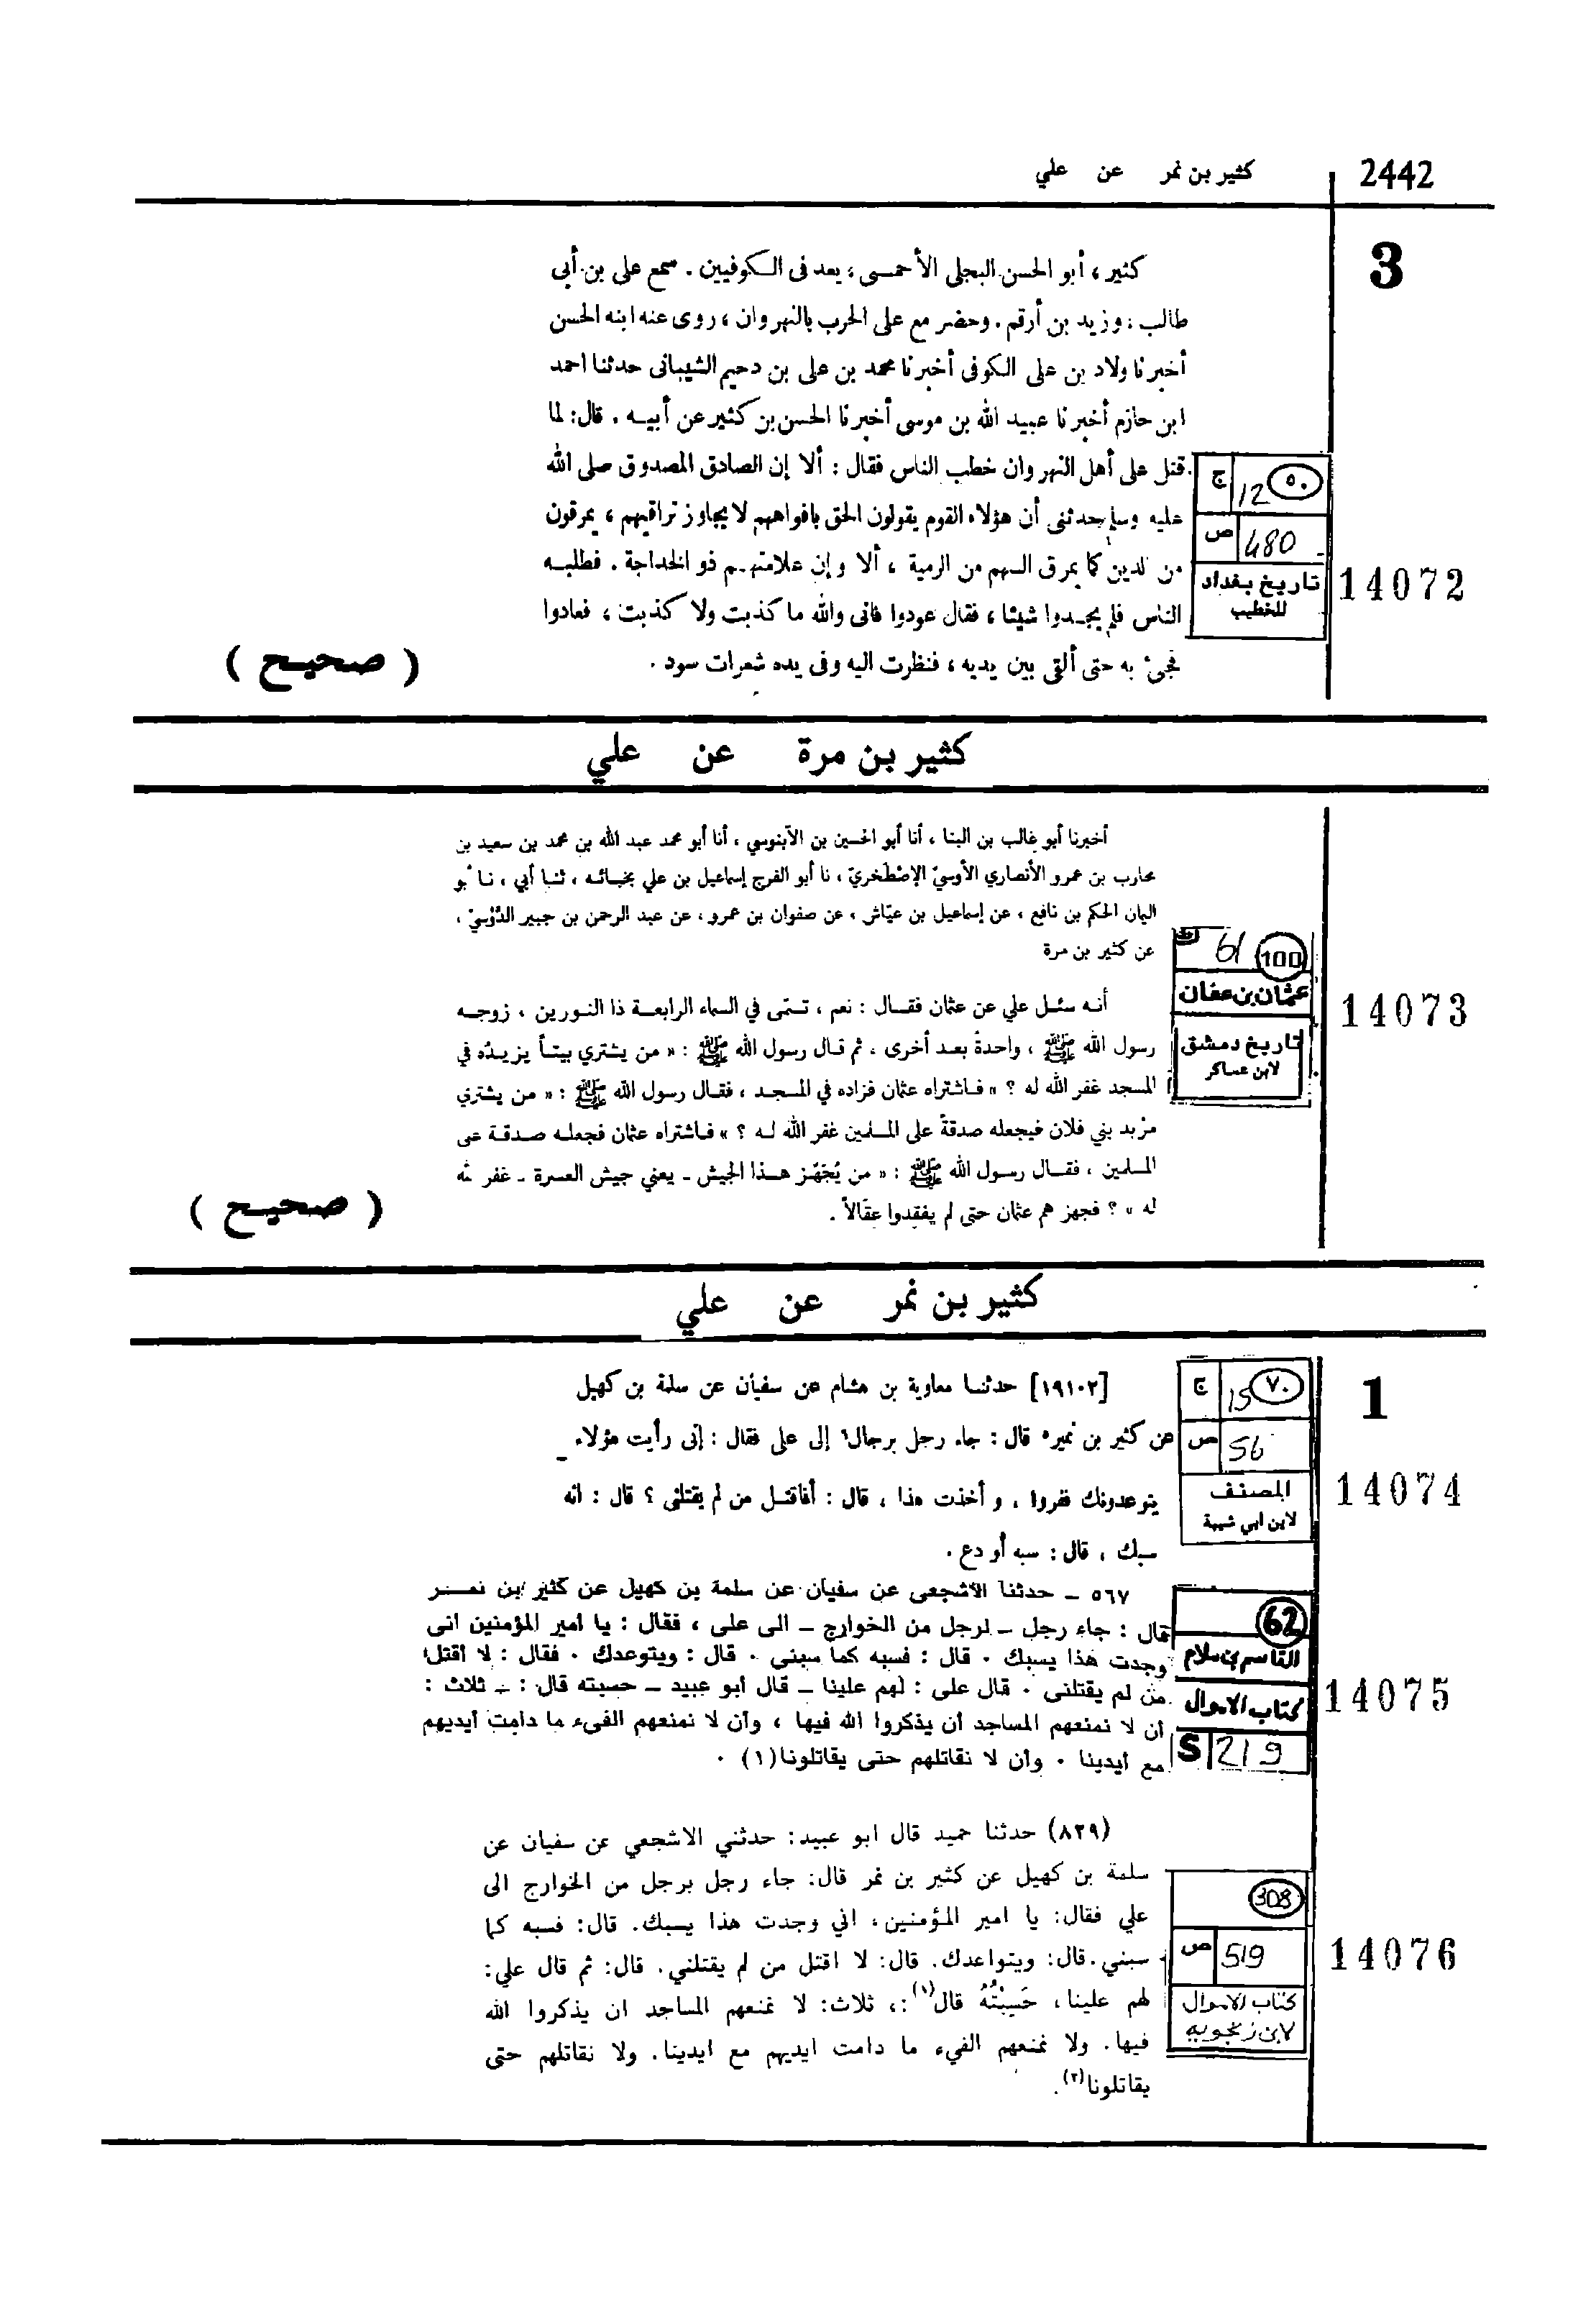 2442
كثير بن نمر عن علي
3
كثير، أبو الحسن البجلى الأحمسى، يعد فى الكوفيين. سمع على بن أبى
طالب، وزيد بن أرقم. وحضر مع على الحرب بالنهروان، روى عنه ابنه الحسن
أخبرنا ولاد بن على الكوفى أخبرنا محمد بن على بن دحيم الشيبانى حدثنا احمد
ابن حازم أخبرنا عبيد الله بن موسى أخبرنا الحسن بن كثير عن أبيه. قال: لما
قتل على أهل النهروان خطب الناس فقال: ألا إن الصادق المصدوق صلى الله
عليه وسلم حدثنى أن هؤلاء القوم يقولون الحق بافواههم لا يجاوز تراقيهم، يمرقون
من الدين كما يمرق السهم من الرمية، ألا وإن علامتهم ذو الخداجة. فطلبه
الناس فلم يجدوا شيئا، فقال عودوا فانى والله ما كذبت ولا كذبت، فعادوا
فجئ به حتى ألقى بين يديه، فنظرت اليه وفى يده شعرات سود.
( صحيح )
ج 12 ٥٠
ص 480
تاريخ بغداد
للخطيب
14072
كثير بن مرة عن علي
أخبرنا أبو غالب بن البنا، أنا أبو الحسين بن الآبنوسي، أنا أبو محمد عبد الله بن محمد بن سعيد بن
محارب بن عمرو الأنصاري الأوسيّ الإصْطَخريّ، نا أبو الفرج إسماعيل بن علي بخبائه، ثنا أبي، نا أبو
اليمان الحكم بن نافع، عن إسماعيل بن عيّاش، عن صفوان بن عمرو، عن عبد الرحمن بن جبير الدَّوْسيّ،
عن كثير بن مرة
أنه سئل علي عن عثمان فقال: نعم، تسمّى في السماء الرابعة ذا النورين، زوجه
رسول الله ﷺ، واحدةً بعد أخرى، ثم قال رسول الله ﷺ: « من يشتري بيتاً يزيدُه في
المسجد غفر الله له ؟ » فاشتراه عثمان فزاده في المسجد، فقال رسول الله ﷺ: « من يشتري
مِرْبد بني فلان فيجعله صدقةً على المسلمين غفر الله له ؟ » فاشتراه عثمان فجعله صدقة على
المسلمين، فقال رسول الله ﷺ: « من يُجَهّز هذا الجيش ـ يعني جيش العسرة ـ غفر الله
له » ؟ فجهزهم عثمان حتى لم يفقدوا عقالاً.
( صحيح )
61 100
عثمان بن عفان
تاريخ دمشق
لابن عساكر
14073
كثير بن نمر عن علي
1
[١٩١٠٢] حدثنا معاوية بن هشام عن سفيان عن سلمة بن كهيل
عن كثير بن نمير قال: جاء رجل برجال إلى على فقال: إنى رأيت هؤلاء
يتوعدونك ففروا، و أخذت هذا، قال: أفاقتل من لم يقتلنى ؟ قال: انه
سبك، قال: سبه أو دع.
ج 15 ٧٠
ص 56
المصنف
لابن ابي شيبة
14074
٥٦٧ ـ حدثنا الأشجعى عن سفيان عن سلمة بن كهيل عن كثير بن نمر
قال: جاء رجل ـ لرجل من الخوارج ـ الى على، فقال: يا امير المؤمنين انى
وجدت هذا يسبك. قال: فسبه كما سبنى. قال: ويتوعدك. فقال: لا أقتل
من لم يقتلنى. قال على: لهم علينا ـ قال أبو عبيد ـ حسبته قال: ـ ثلاث:
أن لا نمنعهم المساجد أن يذكروا الله فيها، وأن لا نمنعهم الفىء ما دامت أيديهم
مع أيدينا. وأن لا نقاتلهم حتى يقاتلونا(١).
62
القاسم بن سلام
كتاب الاموال
S 219
14075
(٨٢٩) حدثنا حميد قال ابو عبيد: حدثني الاشجعي عن سفيان عن
سلمة بن كهيل عن كثير بن نمر قال: جاء رجل برجل من الخوارج الى
علي فقال: يا امير المؤمنين، اني وجدت هذا يسبك. قال: فسبه كما
سبني. قال: ويتواعدك. قال: لا اقتل من لم يقتلني. قال: ثم قال علي:
لهم علينا، حَسِبْتُهُ قال(١):، ثلاث: لا نمنعهم المساجد ان يذكروا الله
فيها. ولا نمنعهم الفيء ما دامت ايديهم مع ايدينا. ولا نقاتلهم حتى
يقاتلونا(٢).
308
ص 519
كتاب الاموال
لابن زنجويه
14076